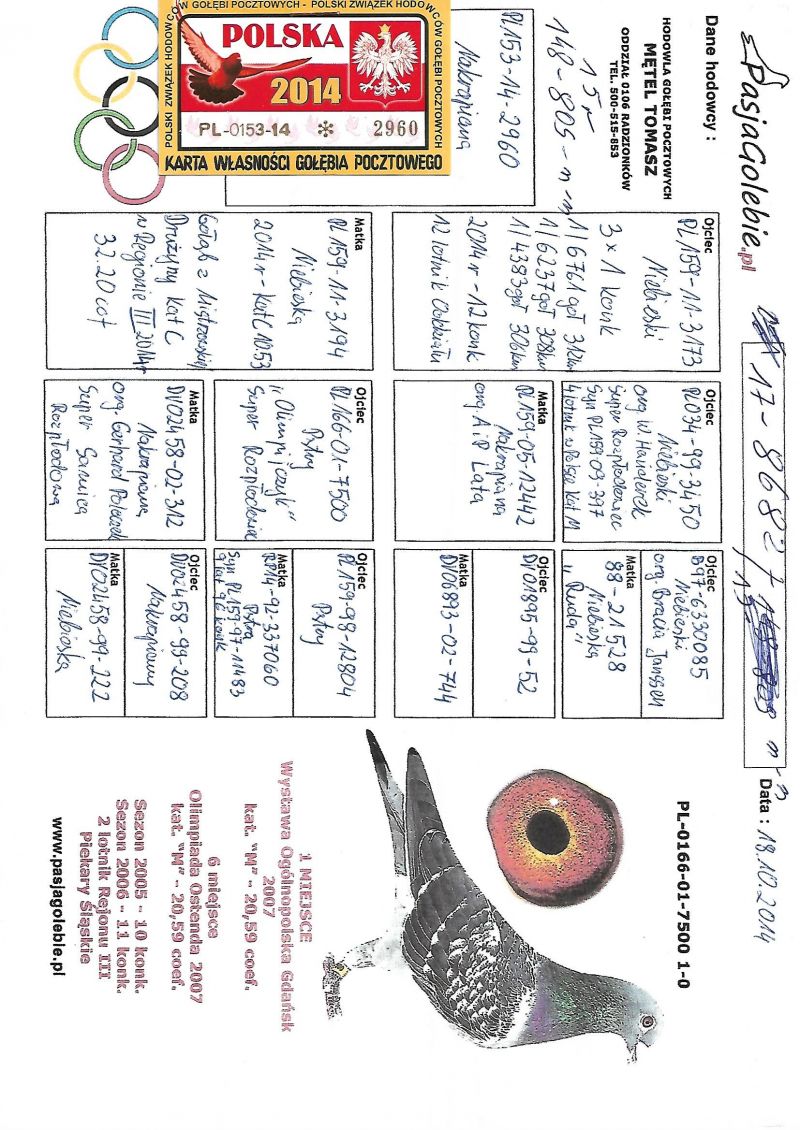 PasjaGolebie.pl
17-868
Data : 18.10.2014
Dane hodowcy :
HODOWLA GOŁĘBI POCZTOWYCH
MĘTEL TOMASZ
ODDZIAŁ 0106 RADZIONKÓW
TEL. 500-515-853
15r
148-805-m-m
PL153-14-2960
Nakrapiana
POLSKI ZWIĄZEK HODOWCÓW GOŁĘBI POCZTOWYCH - POLSKI ZWIĄZEK HODOWCÓW GOŁĘBI POCZTOWYCH
POLSKA
2014
PL-0153-14 * 2960
KARTA WŁASNOŚCI GOŁĘBIA POCZTOWEGO
Ojciec
PL159-11-3173
Niebieski
3 x 1 konk
1/6761 goł 312km
1/6237 goł 308km
1/4383 goł 306km
2014r - 12 konk
12 lotnik Oddziału
Matka
PL159-11-3194
Niebieska
2014r - Kat C 10.53
Gołąb z Mistrzowskiej
Drużyny Kat C
w Regionie III 2014r
32.20 cof
Ojciec
PL034-99-3450
Niebieski
org W. Handerek
Super Rozpłodowiec
Syn PL159-03-397
4 lotnik w Polsce Kat M
Matka
PL159-05-12442
Nakrapiana
org. AiP Lata
Ojciec
PL166-01-7500
Pstry
"Olimpijczyk"
Super Rozpłodowiec
Matka
DV02458-02-312
Nakrapiana
org Gerhard
Super Samica
Rozpłodowa
Ojciec
B97-6330085
Niebieski
org Bracia Janssen
Matka
88-21528
Niebieska
"Ruda"
Ojciec
DV01895-99-52
Matka
DV06893-02-744
Ojciec
PL159-98-12804
Pstry
Matka
RP14-92-337060
Pstra
Syn PL159-97-11483
9 lat 96 konk
Ojciec
DV02458-99-208
Nakrapiany
Matka
DV02458-99-222
Niebieska
PL-0166-01-7500 1-0
1 MIEJSCE
Wystawa Ogólnopolska Gdańsk
2007
kat. "M" - 20,59 coef.
6 miejsce
Olimpiada Ostenda 2007
kat. "M" - 20,59 coef.
Sezon 2005 - 10 konk.
Sezon 2006 - 11 konk.
2 lotnik Rejonu III
Piekary Śląskie
www.pasjagolebie.pl